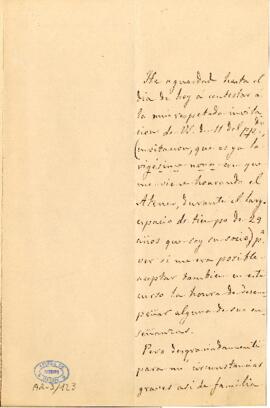 He aguardado hasta el
dia de hoy á contestar á
la muy respetada invita
cion de V. de 11 del ppdo
(invitacion, que es ya la
vigésima nona en que
me viene honrando el
Ateneo, durante el largo
espacio de tiempo de 29
años que soy su socio) pª
ver si me era posible
aceptar tambien en este
curso la honra de desem
peñar alguna de sus en
señanzas.
Pero desgraciadamente
para mi circunstancias
graves asi de familia